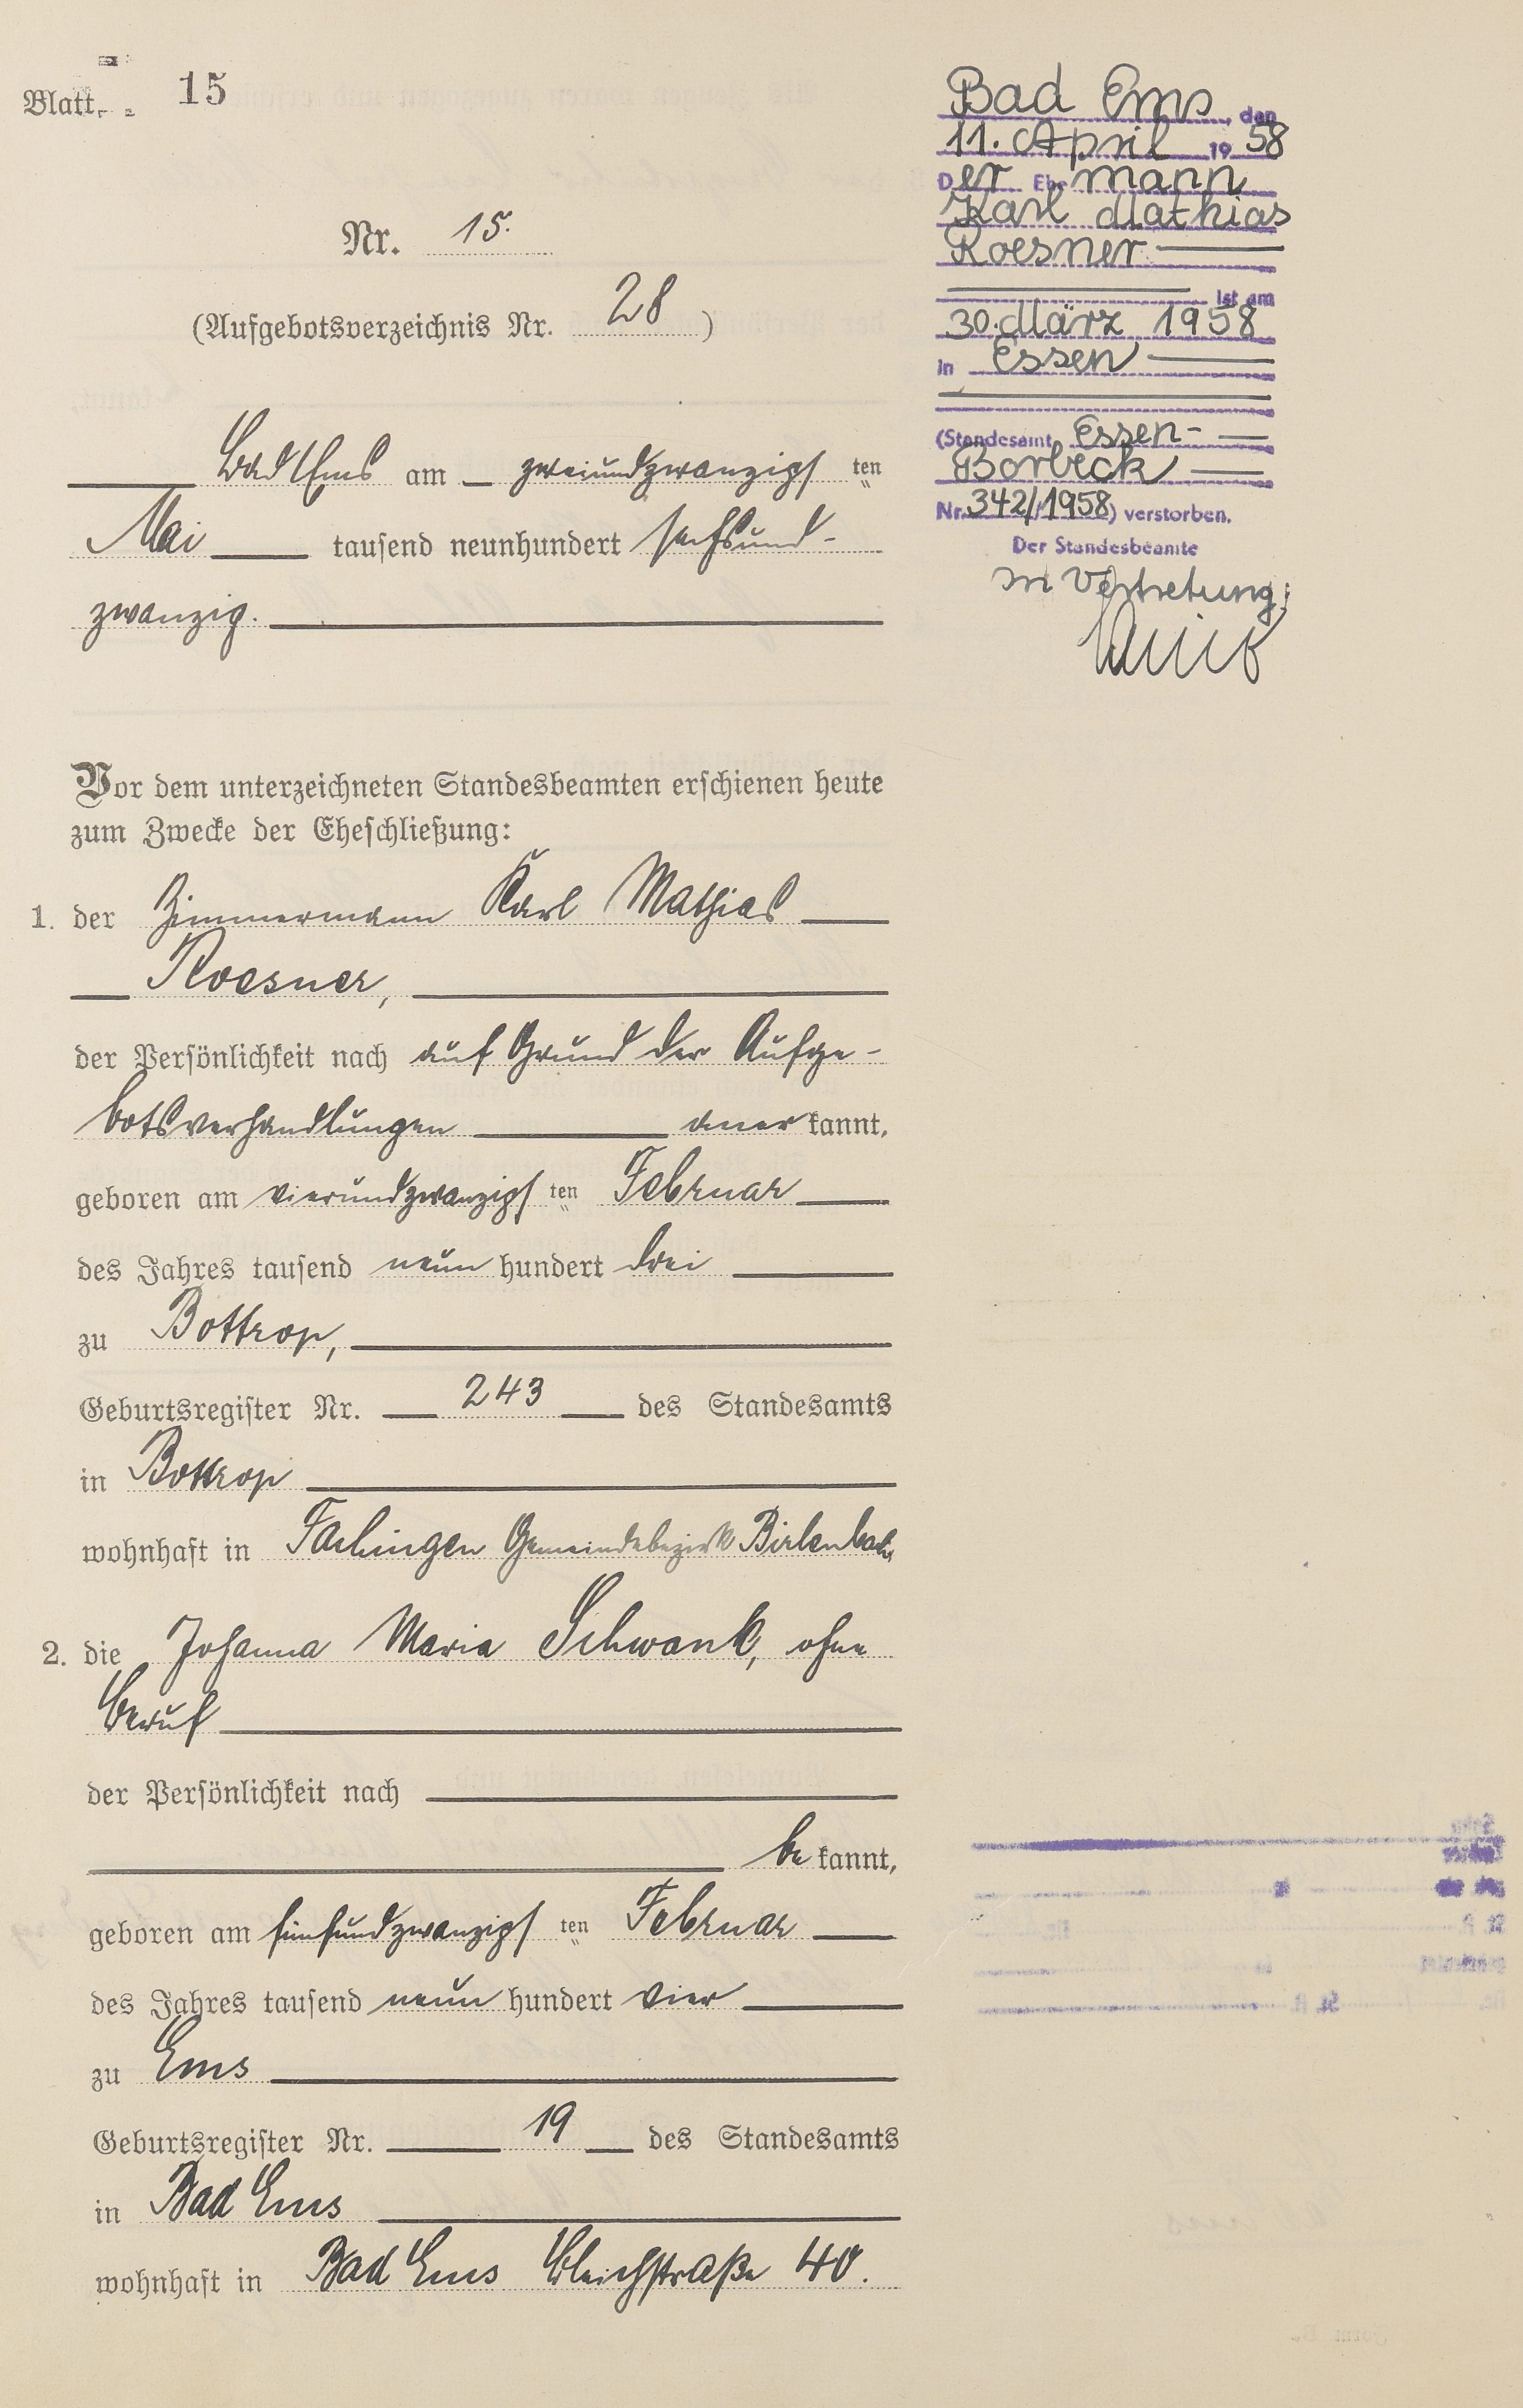 Blatt 15
Nr. 15.
(Aufgebotsverzeichnis Nr. 28)
Bad Ems am zweiundzwanzigsten
Mai tausend neunhundert sechsund-
zwanzig.
Vor dem unterzeichneten Standesbeamten erschienen heute
zum Zwecke der Eheschließung:
1. der Zimmermann Karl Mathias
Roesner,
der Persönlichkeit nach auf Grund der Aufge-
botsverhandlungen anerkannt,
geboren am vierundzwanzigsten Februar
des Jahres tausend neun hundert drei
zu Bottrop,
Geburtsregister Nr. 243 des Standesamts
in Bottrop
wohnhaft in Fachingen Gemeindebezirk Birlenbach,
2. die Johanna Maria Schwank, ohne
Beruf
der Persönlichkeit nach
bekannt,
geboren am fünfundzwanzigsten Februar
des Jahres tausend neun hundert vier
zu Ems
Geburtsregister Nr. 19 des Standesamts
in Bad Ems
wohnhaft in Bad Ems Bleichstraße 40.
Bad Ems, den
11. April 1958
Der Ehemann
Karl Mathias
Roesner
ist am
30. März 1958
in Essen
(Standesamt Essen-
Borbeck
Nr. 342/1958) verstorben.
Der Standesbeamte
In Vertretung: